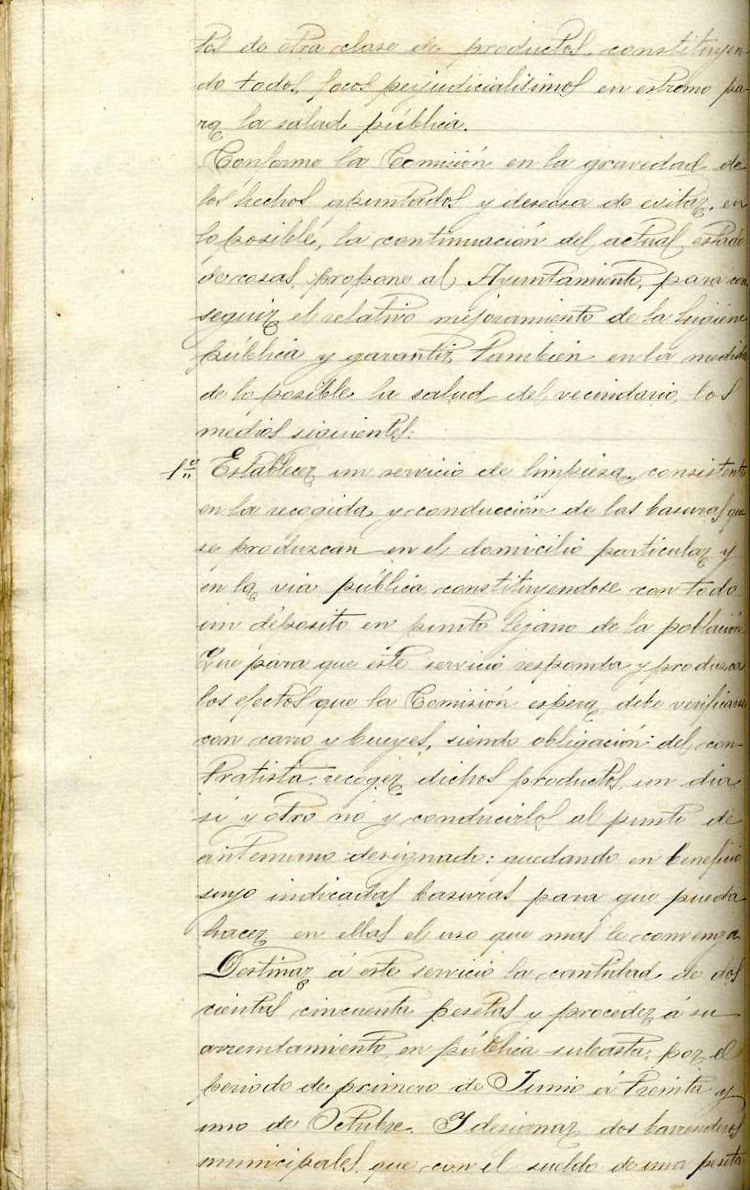 tos de otra clase de productos, constituyen-
do todos, focos perjudicialisimos en estremo pa-
ra la salud pública.
Conforme la Comisión en la gravedad de
los hechos apuntados y deseosa de evitar, en
lo posible, la continuación del actual estado
de cosas, propone al Ayuntamiento, para con
seguir el relativo mejoramiento de la higiene
pública y garantir tambien en la medida
de lo posible la salud del vecindario, los
medios siguientes:
1º Establecer un servicio de limpieza, consistente
en la recogida y conducción de las basuras que
se produzcan en el domicilio particular y
en la via pública constituyendose con todo
un déposito en punto lejano de la población
Que para que éste servicio responda y produzca
los efectos que la Comisión espera, debe verificarse
con carro y bueyes, siendo obligación del con-
tratista recoger dichos productos un dia
si y otro nó y conducirlos al punto de
antemano designado: quedando en beneficio
suyo indicadas basuras para que pueda
hacer en ellas el uso que mas le convenga
Destinar á este servicio la cantidad de dos
cientas cincuenta pesetas y proceder á su
arrendamiento en pública subasta, por el
periodo de primero de Junio á treinta y
uno de Octubre. Y designar dos barrenderos
municipales, que con el sueldo de una peseta